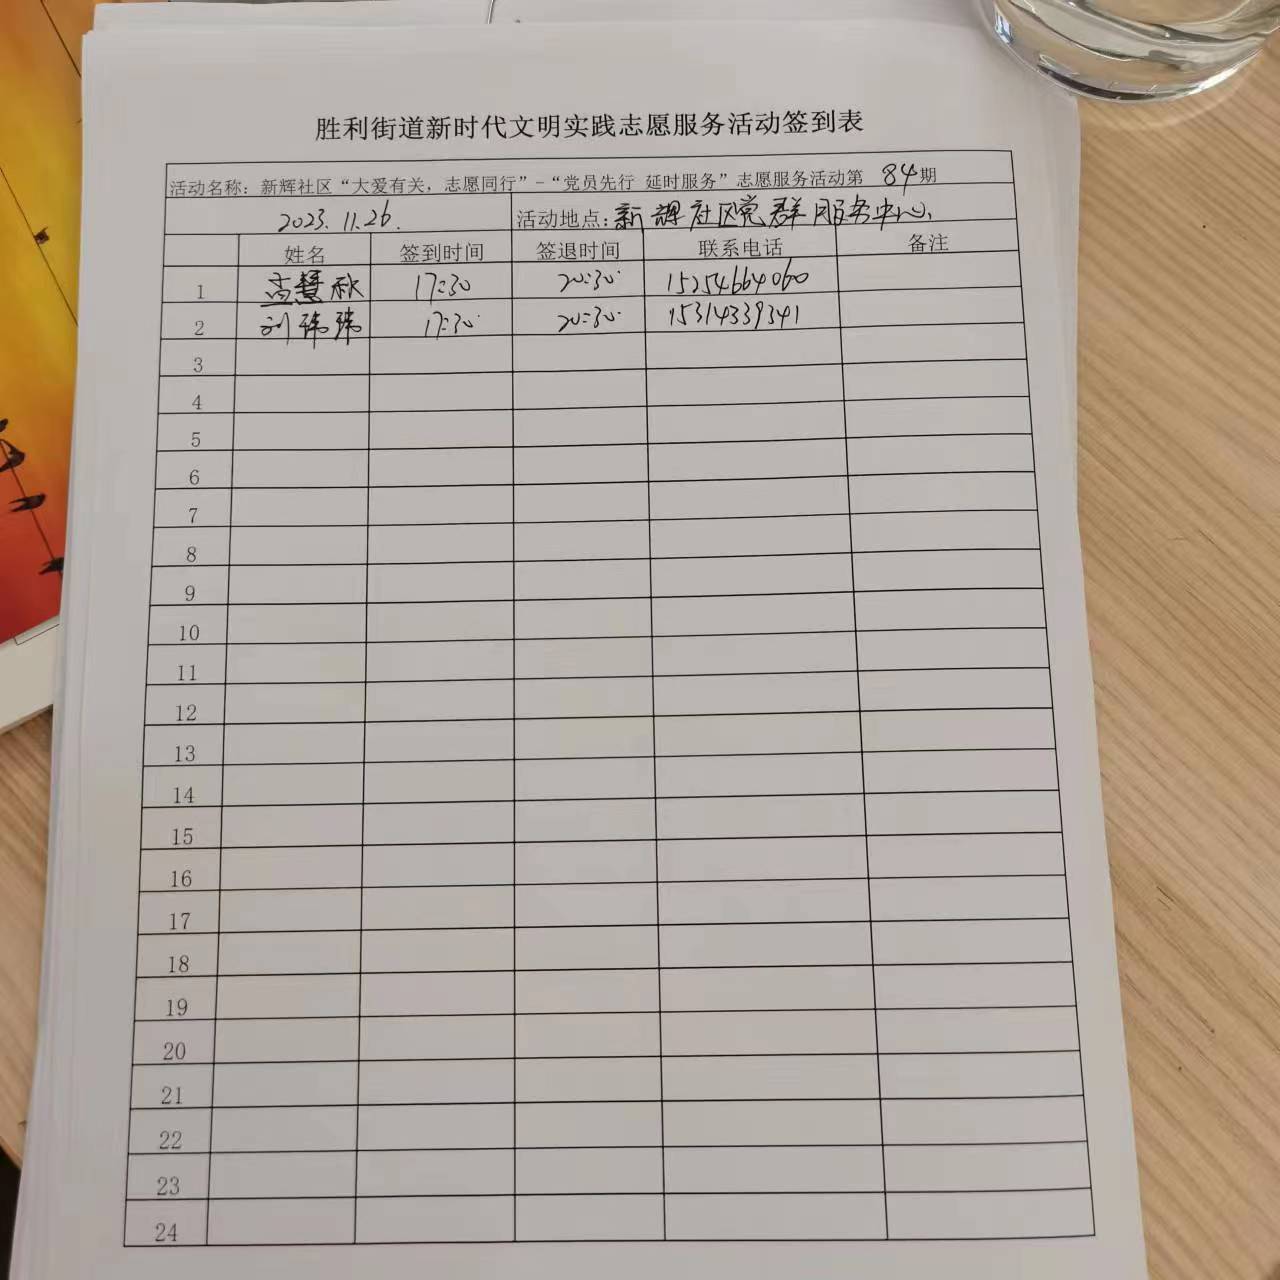 胜利街道新时代文明实践志愿服务活动签到表
活动名称：新辉社区“大爱有关，志愿同行”-“党员先行 延时服务”志愿服务活动第 84期
2023.11.26. 活动地点：新辉社区党群服务中心
姓名 签到时间 签退时间 联系电话 备注
1 高慧秋 17:30 20:30 15254664060
2 刘玮玮 17:30 20:30 15314339341
3
4
5
6
7
8
9
10
11
12
13
14
15
16
17
18
19
20
21
22
23
24